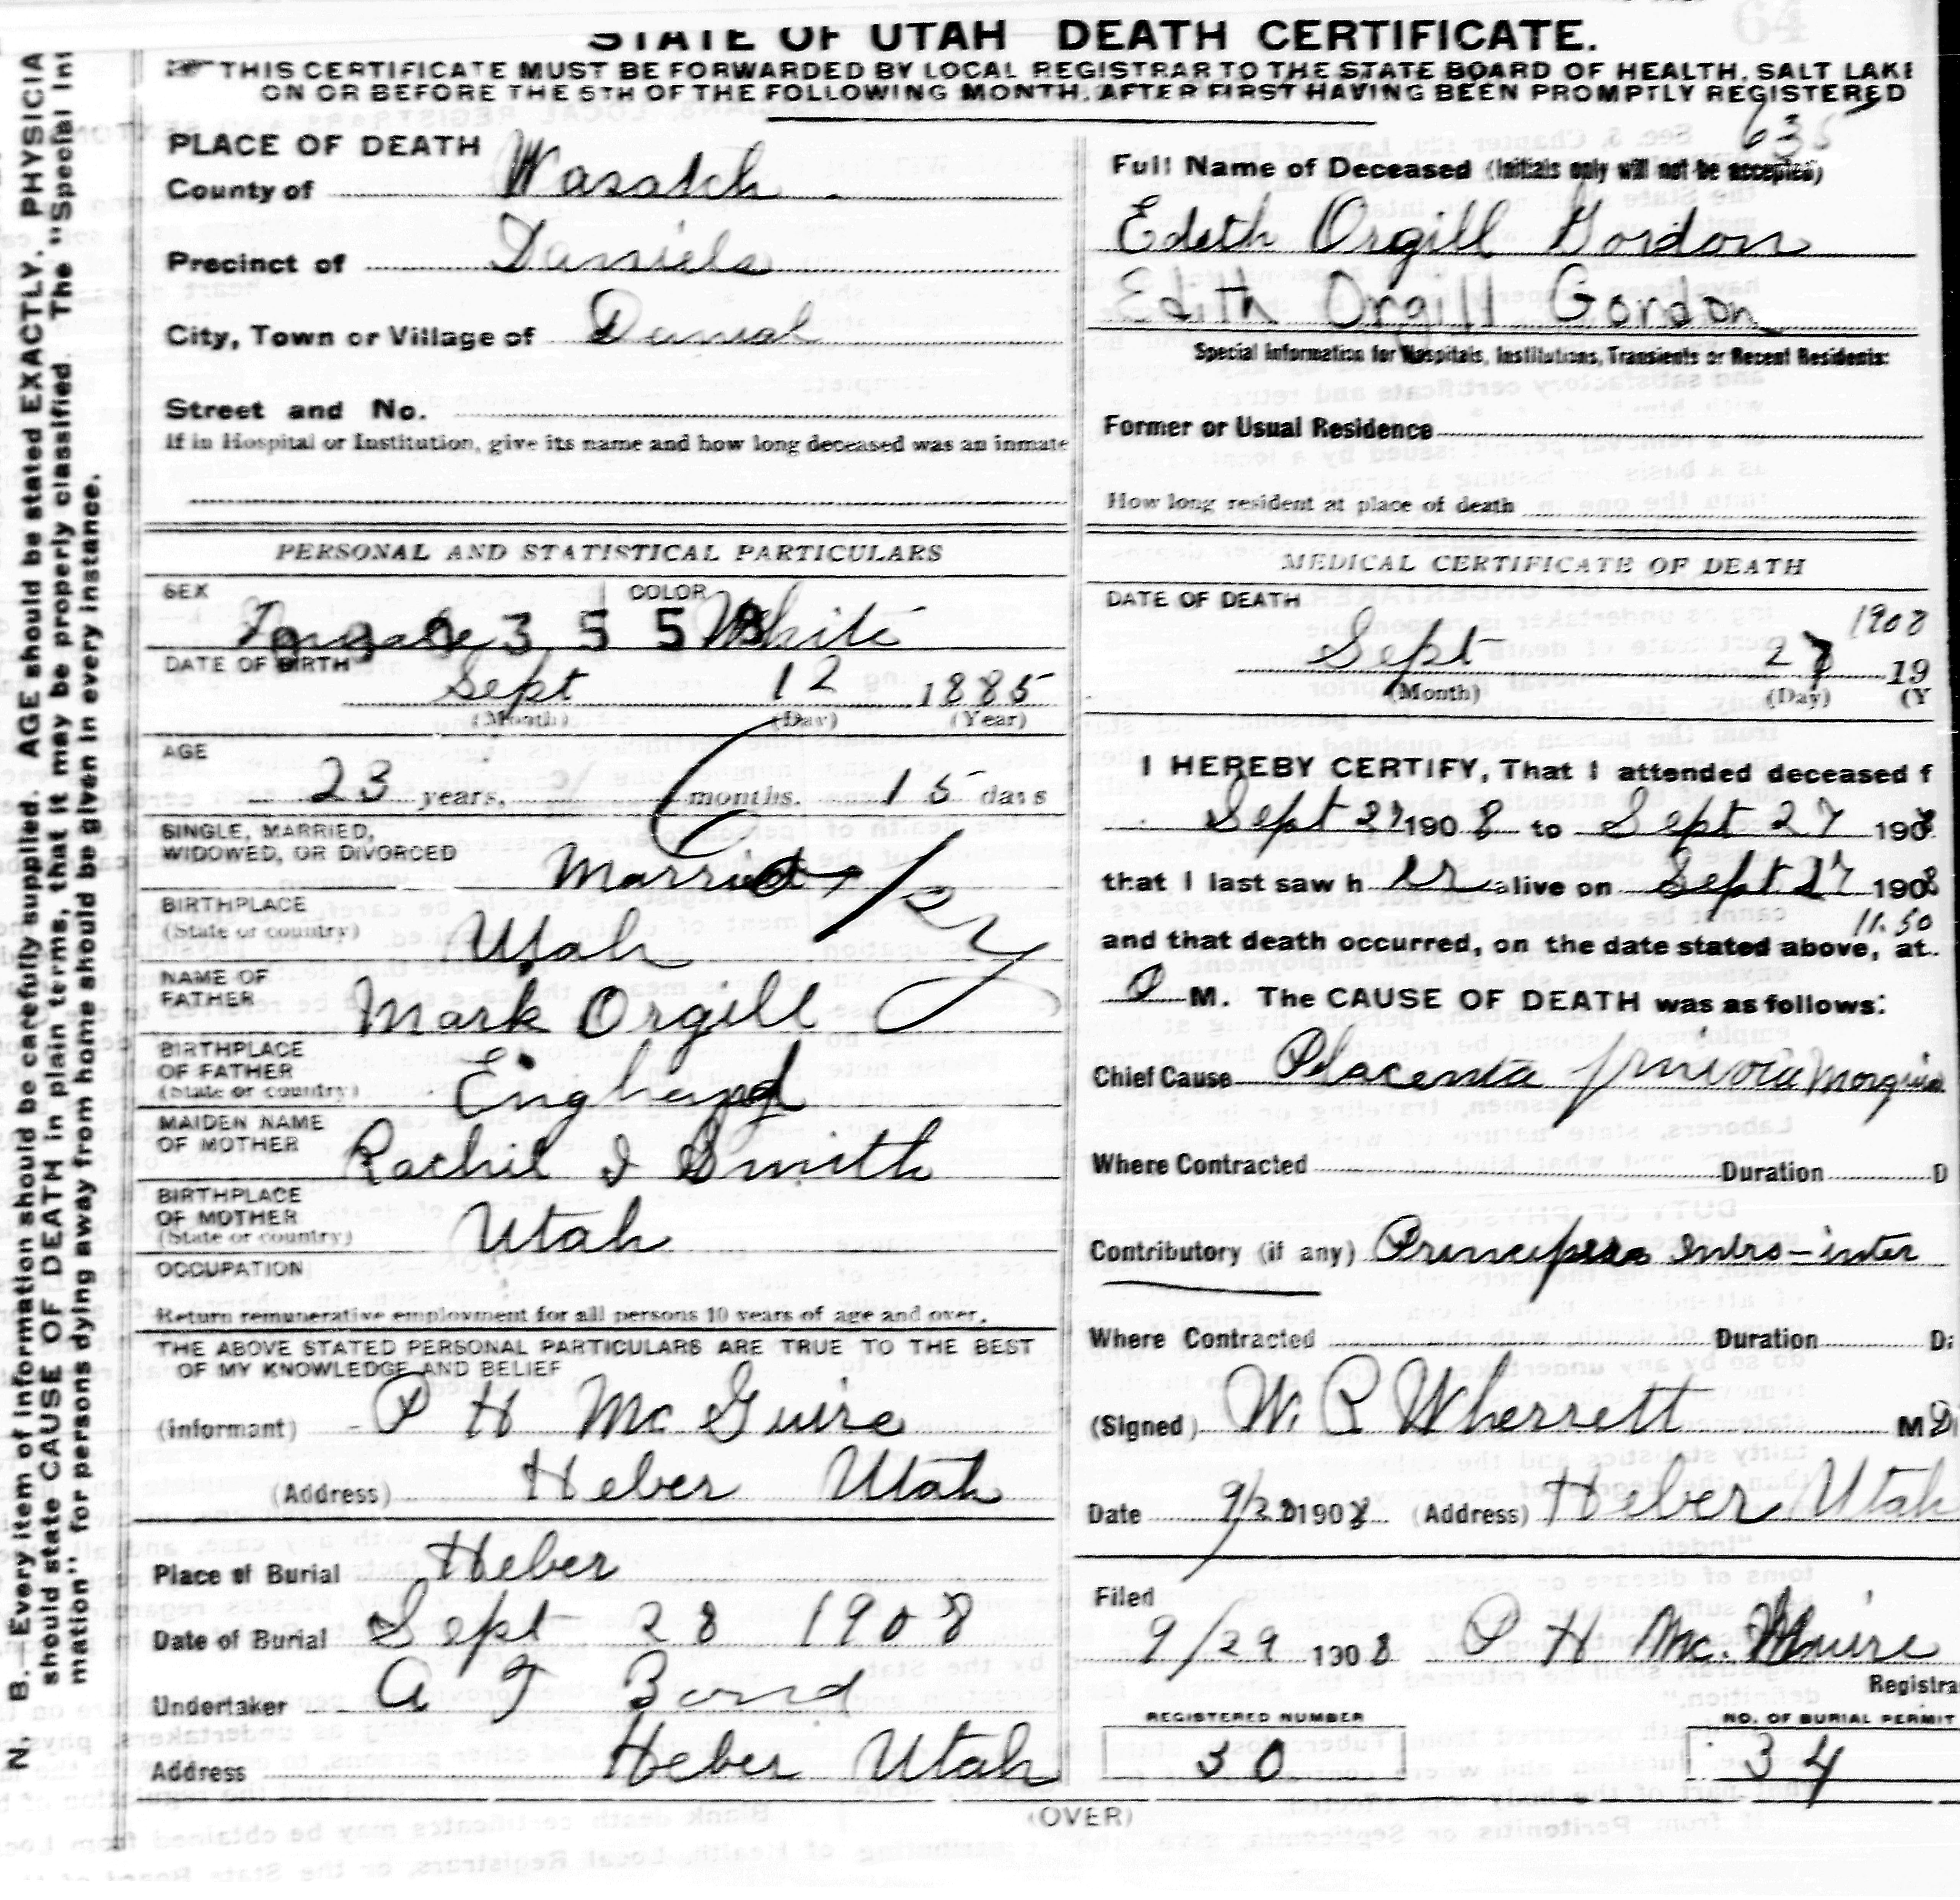 STATE OF UTAH DEATH CERTIFICATE.
THIS CERTIFICATE MUST BE FORWARDED BY LOCAL REGISTRAR TO THE STATE BOARD OF HEALTH, SALT LAKE
ON OR BEFORE THE 5TH OF THE FOLLOWING MONTH, AFTER FIRST HAVING BEEN PROMPTLY REGISTERED
N. B. Every item of information should be carefully supplied. AGE should be stated EXACTLY. PHYSICIA
should state CAUSE OF DEATH in plain terms, that it may be properly classified. The "Special Inf
mation" for persons dying away from home should be given in every instance.
PLACE OF DEATH
County of Wasatch
Precinct of Daniels
City, Town or Village of Danial
Street and No.
If in Hospital or Institution, give its name and how long deceased was an inmate
PERSONAL AND STATISTICAL PARTICULARS
SEX Female COLOR White
3 5 5 8
DATE OF BIRTH
Sept 12 1885
(Month) (Day) (Year)
AGE
23 years, months. 15 days
SINGLE, MARRIED,
WIDOWED, OR DIVORCED Married
BIRTHPLACE
(State or country) Utah
NAME OF
FATHER Mark Orgill
BIRTHPLACE
OF FATHER
(State or country) England
MAIDEN NAME
OF MOTHER Rachil I Smith
BIRTHPLACE
OF MOTHER
(State or country) Utah
OCCUPATION
Return remunerative employment for all persons 10 years of age and over.
THE ABOVE STATED PERSONAL PARTICULARS ARE TRUE TO THE BEST
OF MY KNOWLEDGE AND BELIEF
(informant) P H McGuire
(Address) Heber Utah
Place of Burial Heber
Date of Burial Sept 28 1908
Undertaker A T Bond
Address Heber Utah
635
Full Name of Deceased (Initials only will not be accepted)
Edeth Orgill Gordon
Edith Orgill Gordon
Special Information for Hospitals, Institutions, Transients or Recent Residents:
Former or Usual Residence
How long resident at place of death
MEDICAL CERTIFICATE OF DEATH
DATE OF DEATH
1908
Sept 27 19
(Month) (Day) (Y
I HEREBY CERTIFY, That I attended deceased f
Sept 27 1908 to Sept 27 1908
that I last saw h er alive on Sept 27 1908
11.50
and that death occurred, on the date stated above, at
P M. The CAUSE OF DEATH was as follows:
Chief Cause Placenta
Where Contracted Duration D
Contributory (if any)
Where Contracted Duration D
(Signed) W. R Wherrett M D
Date 9/28 1908 (Address) Heber Utah
Filed
9/29 1908 P H McGuire
Registra
REGISTERED NUMBER
30
NO. OF BURIAL PERMIT
34
(OVER)